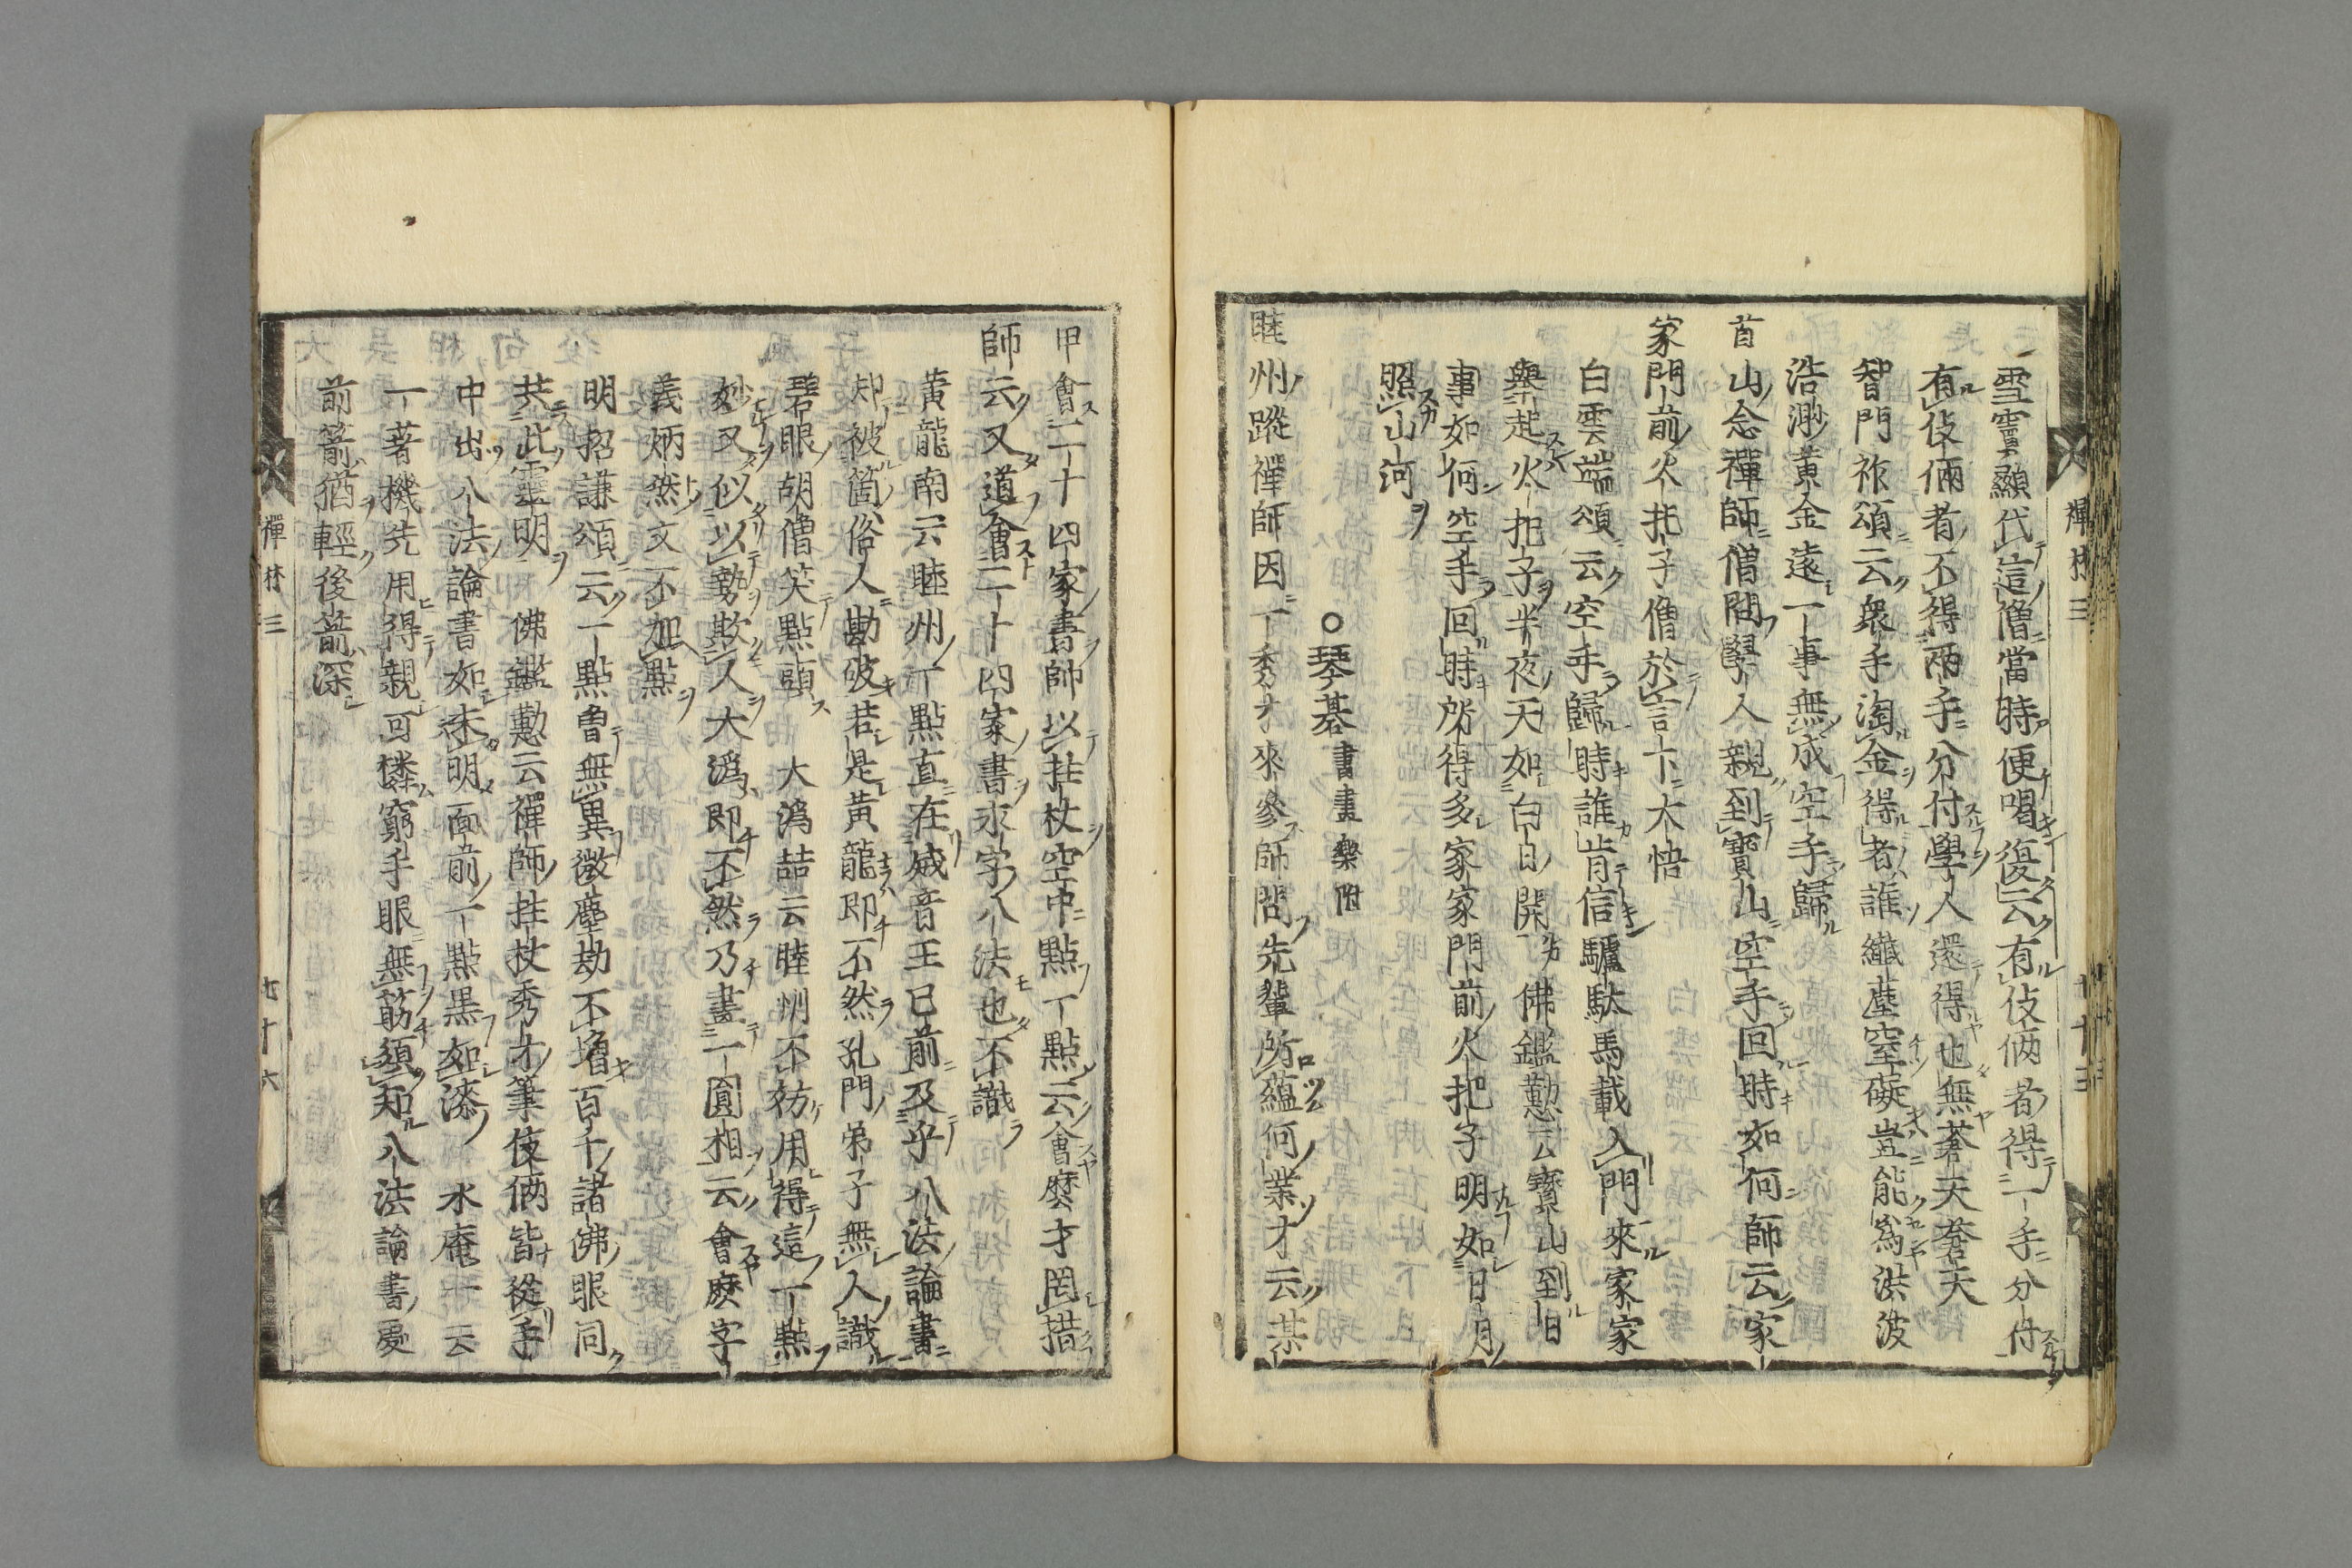 雪竇顯代這僧當時便喝復云有伎倆者得一手分付
有伎倆者不得兩手分付學人還得也無蒼天蒼天
智門祚頌云衆手淘金得者誰纖塵窒礙豈能爲洪波
浩渺黄金遠一事無成空手歸
首山念禪師僧問學人親到寶山空手回時如何師云家
家門前火把子僧於言下大悟
白雲端頌云空手歸時誰肯信驢馱馬載入門來家家
舉起火把子半夜天如白日開 佛鑑懃云寶山到日
事如何空手回時所得多家家門前火把子明如日月
照山河
○琴碁書畫樂附
睦州蹤禪師因一秀才來參師問先輩所蘊何業才云某
甲會二十四家書師以拄杖空中點一點云會麽才罔措
師云又道會二十四家書永字八法也不識
黄龍南云睦州一點直在威音王已前及乎八法論書
却被箇俗人勘破若是黄龍即不然孔門弟子無人識
碧眼胡僧笑點頭 大潙喆云睦州不妨用得這一點
妙又似以勢欺人大潙即不然乃畫一圓相云會麽字
義炳然文不加點
明招謙頌云一點曾無異微塵劫不墖百千諸佛眼同
共此靈明 佛鑑懃云禪師拄杖秀才筆伎倆皆從手
中出八法論書如未明面前一點黒如漆 水庵一云
一著機先用得親可憐窮手眼無筋須知八法論書處
前箭猶輕後箭深
禪林三
七十六
禪林三